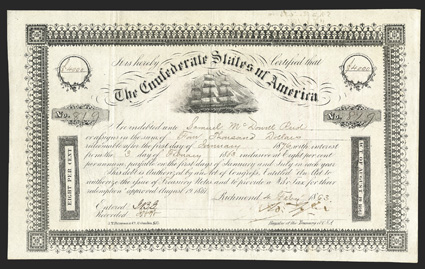 It is hereby Certified that
The Confederate States of America
$4000
$4000
No. 819
No. 819
Are indebted unto Samuel McDowell Reid
or assigns in the sum of Four Thousand Dollars
redeemable after the first day of January 1876 with interest
from the 3 day of February 1863 inclusive at Eight per cent
per annum payable on the first days of January and July in each year
This debt is authorized by an Act of Congress, Entitled "An Act to
authorize the issue of Treasury Notes and to provide a War tax for their
redemption" approved August 19 1861
EIGHT PER CENT
Richmond 1863
Entered
Recorded
Register of the Treasury C.S.A.